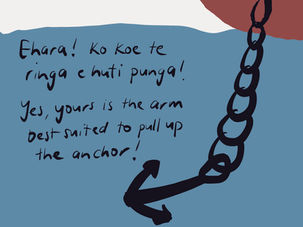 Ehara! Ko koe te
ringa e huti punga!
Yes, yours is the arm
best suited to pull up
the anchor!